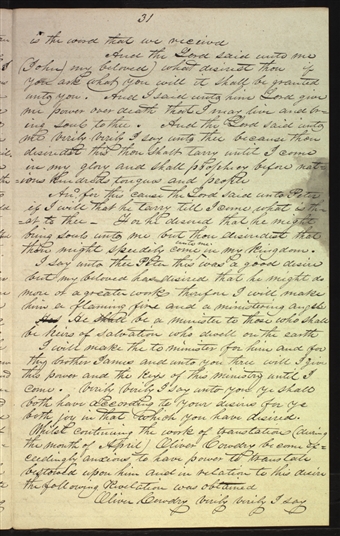 31
is the word that we received
And the Lord said unto me
(John my beloved) what desirest thou if
you ask what you will it shall be granted
unto you. And I said unto him Lord give
me power over death that I may live and br-
ing souls to thee. And the Lord said unto
me verily verily I say unto thee because thou
desirest this thou shalt tarry until I come
in my glory and shall prophesy before nat-
ions kindreds tongues and people
And for this cause the Lord said unto Peter
if I will that he tarry till I come what is
that to thee - For he desired that he might
bring souls unto me but thou desiredst that
thou might speedily come unto me in my Kingdom.
I say unto thee Peter this was a good desire
but my beloved has desired that he might do
more or a greater work therefore I will make
him a flaming fire and a ministering angel
He shall be a minister to those who shall
be heirs of salvation who dwell on the earth
I will make thee to minister for him and for
thy brother James and unto you three will I give
this power and the keys of this ministry until I
come. Verily Verily I say unto you ye shall
both have according to your desires for ye
both joy in that which you have desired.
Whilst continuing the work of translation (during
the month of April) Oliver Cowdry become ex-
ceedingly anxious to have power to translate
bestowed upon him and in relation to his desire
the following Revelation was obtained
Oliver Cowdry verily verily I say